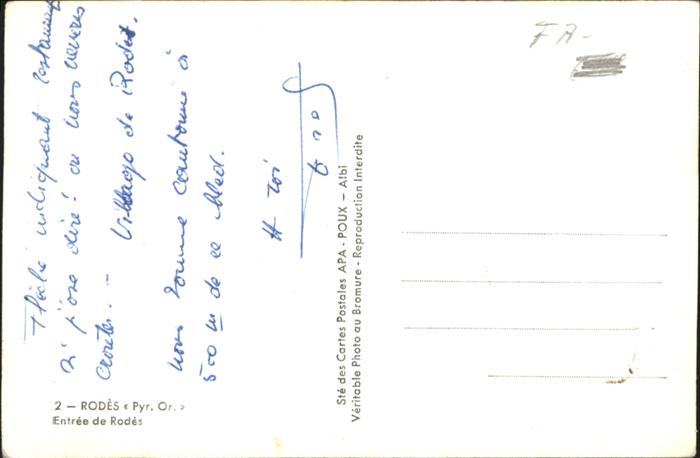 Flèche indiquant restaurant
si j'ose dire! où nous venons
Crouter. – Village de Rodès.
nous somme cantonné à
500 m de ce bled.
A toi
FA-
2 — RODÈS « Pyr. Or. »
Entrée de Rodès
Sté des Cartes Postales APA - POUX — Albi
Véritable Photo au Bromure - Reproduction Interdite